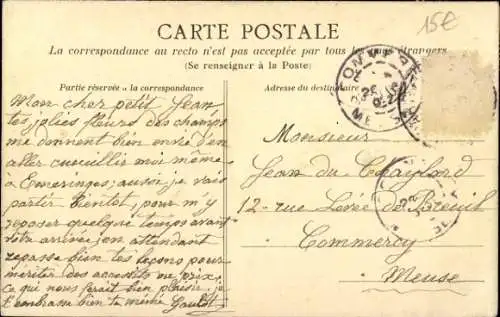 15€
CARTE POSTALE
La correspondance au recto n'est pas acceptée par tous les pays étrangers
(Se renseigner à la Poste)
Partie réservée à la correspondance
Adresse du destinataire
Mon cher petit Jean
tes jolies fleurs des champs
me donnent bien envie d'en
aller cueillir moi même
à Emeringes; aussi je vais
partir bientôt, pour m'y
reposer quelque temps avant
votre arrivée; en attendant
repasse bien tes leçons pour
mériter des accessits ou prix,
ce qui nous ferait bien plaisir. je
t'embrasse bien ta mémé
Monsieur
Jean du Chaylard
12 - rue Levée de Breuil
Commercy
Meuse